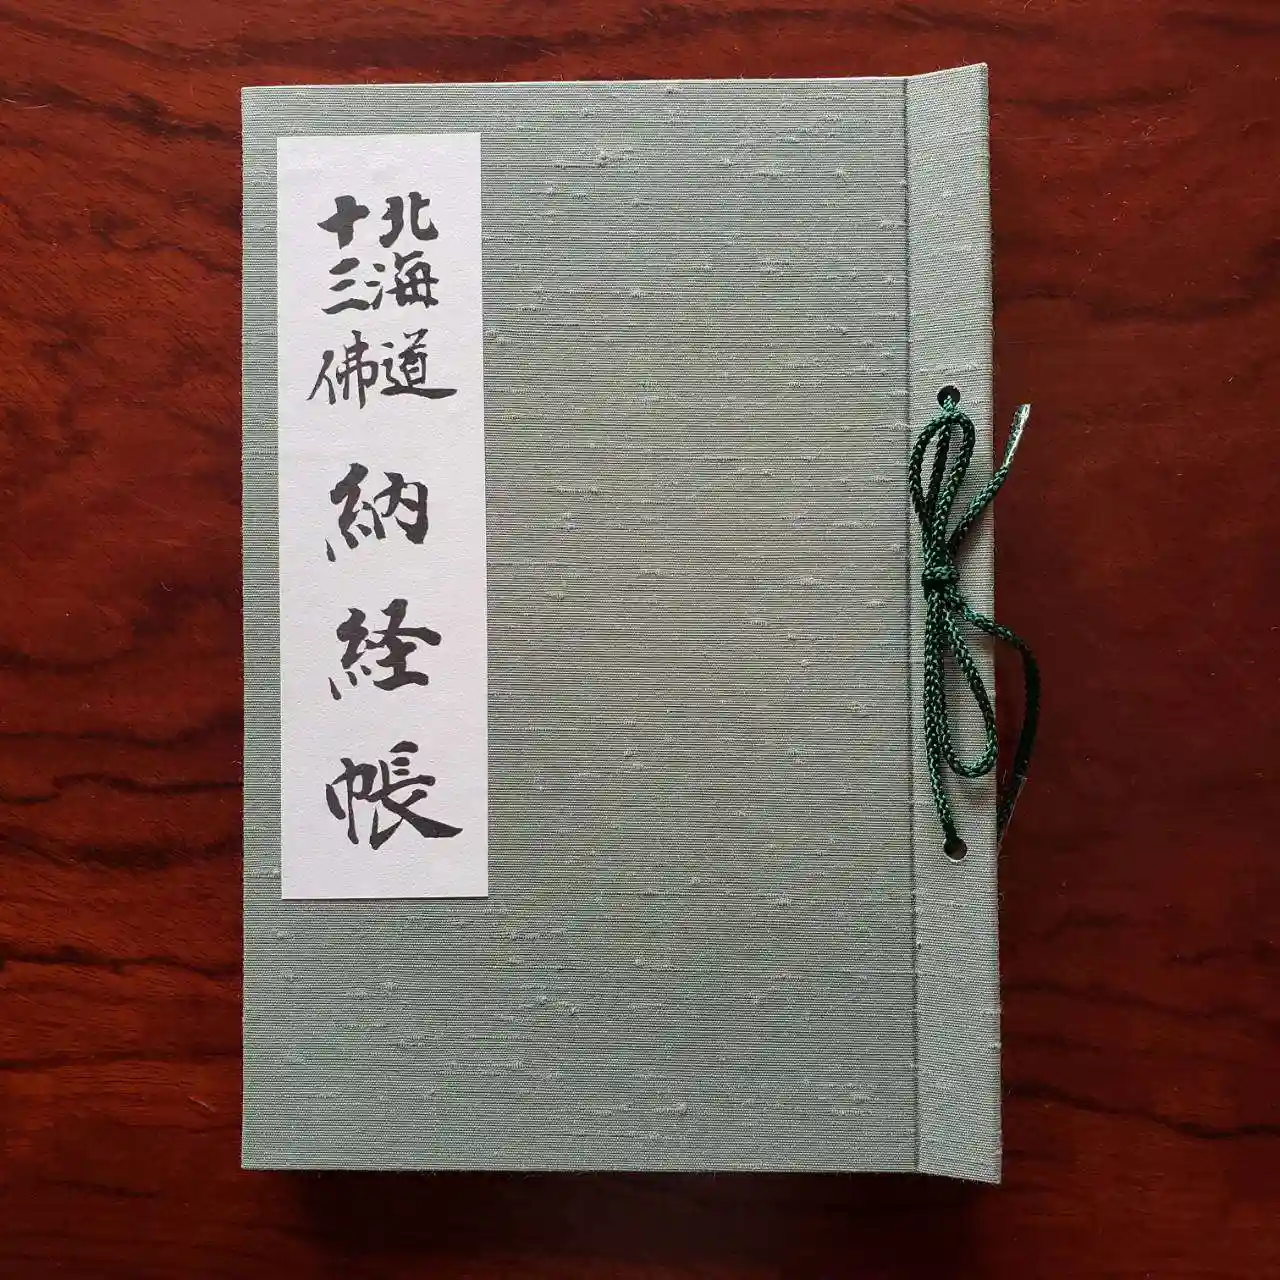 北海道
十三佛
納経帳